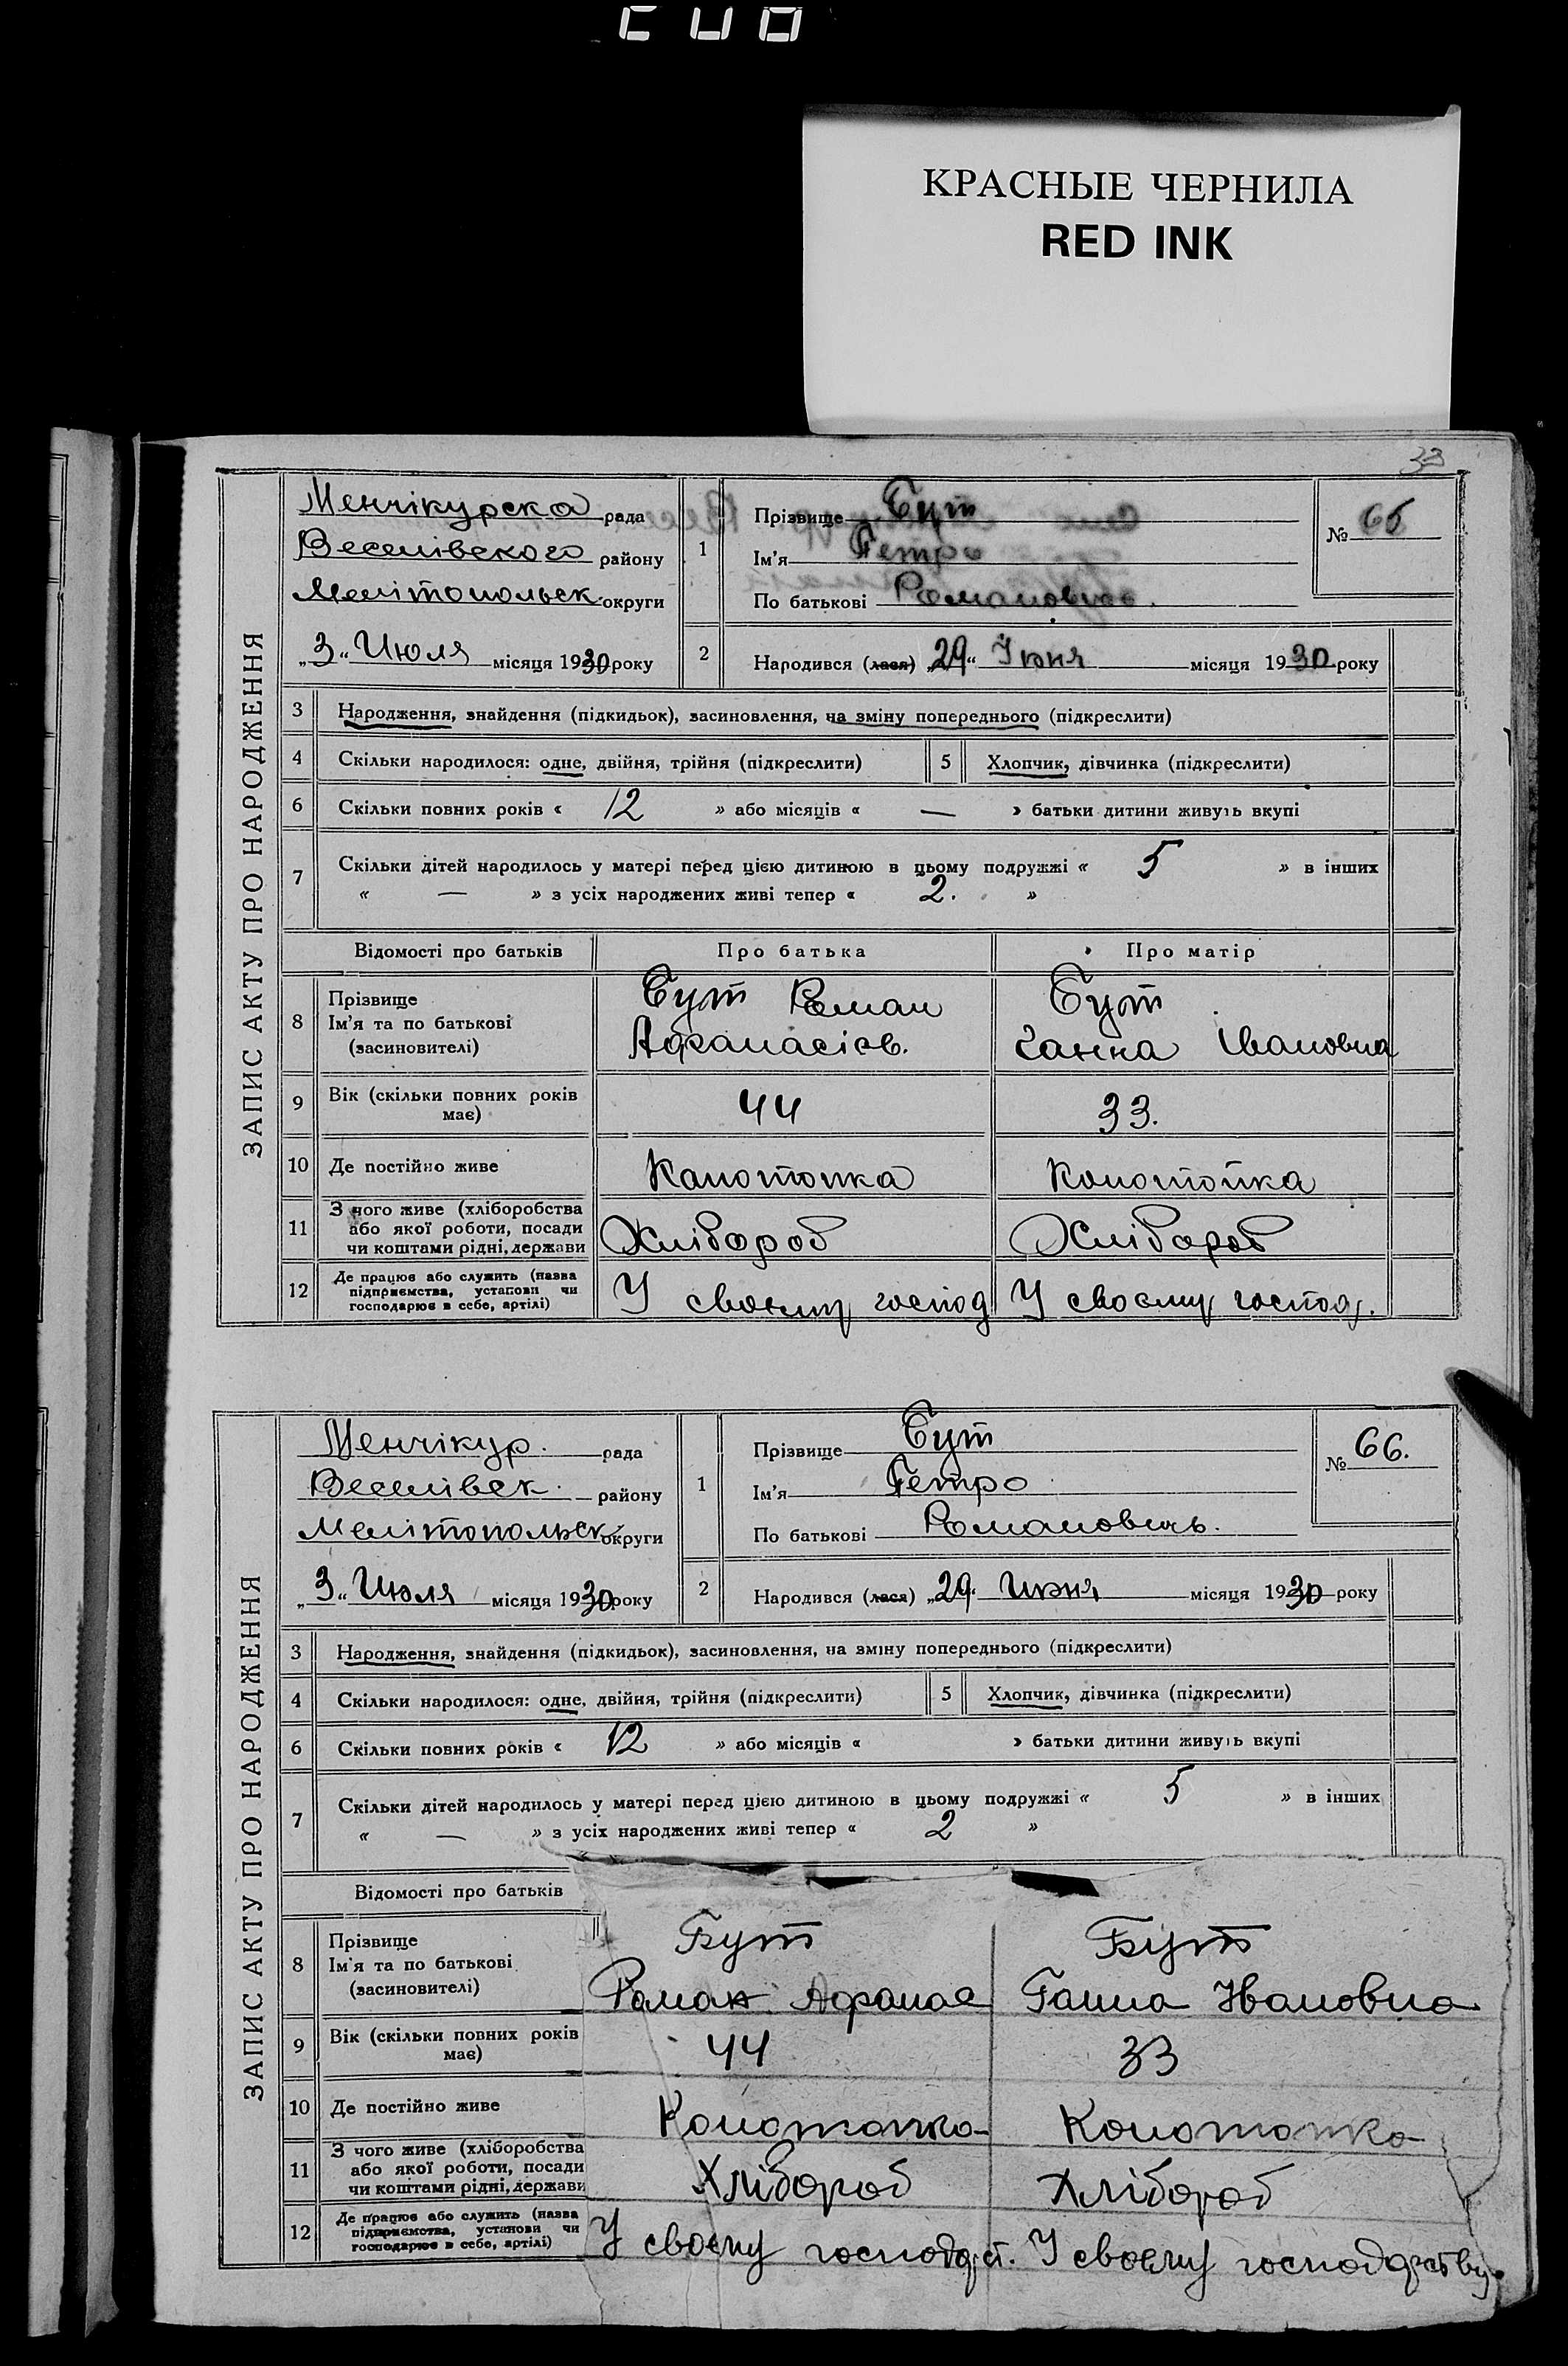 КРАСНЫЕ ЧЕРНИЛА
RED INK
33
ЗАПИС АКТУ ПРО НАРОДЖЕННЯ
Менчікурска рада
Веселівского району
Мелітопольск. округи
„3“ Июля місяця 1930 року
1
Прізвище Бут
Ім'я Петро
По батькові Романович.
№ 65
2
Народився (лася) „29“ Іюня місяця 1930 року
3 Народження, знайдення (підкидьок), засиновлення, на зміну попереднього (підкреслити)
4 Скільки народилося: одне, двійня, трійня (підкреслити) 5 Хлопчик, дівчинка (підкреслити)
6 Скільки повних років « 12 » або місяців « — » батьки дитини живуть вкупі
7 Скільки дітей народилось у матері перед цією дитиною в цьому подружжі « 5 » в інших
« — » з усіх народжених живі тепер « 2. »
Відомості про батьків Про батька Про матір
8 Прізвище Бут Роман Бут
Ім'я та по батькові Афанасієв. Ганна Івановна
(засиновителі)
9 Вік (скільки повних років 44 33.
має)
10 Де постійно живе Канотопка Конотопка
11 З чого живе (хліборобства
або якої роботи, посади Хлібороб Хлібороб
чи коштами рідні, держави
12 Де працює або служить (назва
підприємства, установи чи У своєму господ У своєму господ.
господарює в себе, артілі)
ЗАПИС АКТУ ПРО НАРОДЖЕННЯ
Менчікур. рада
Веселівск. району
Мелітопольск. округи
„3“ Июля місяця 1930 року
1
Прізвище Бут
Ім'я Петро
По батькові Романовичь.
№ 66.
2
Народився (лася) „29“ Июня місяця 1930 року
3 Народження, знайдення (підкидьок), засиновлення, на зміну попереднього (підкреслити)
4 Скільки народилося: одне, двійня, трійня (підкреслити) 5 Хлопчик, дівчинка (підкреслити)
6 Скільки повних років « 12 » або місяців « » батьки дитини живуть вкупі
7 Скільки дітей народилось у матері перед цією дитиною в цьому подружжі « 5 » в інших
« — » з усіх народжених живі тепер « 2 »
Відомості про батьків
8 Прізвище Бут Бут
Ім'я та по батькові Роман Афанас Ганна Ивановна
(засиновителі)
9 Вік (скільки повних років 44 33
має)
10 Де постійно живе Конотопка Конотопка
11 З чого живе (хліборобства
або якої роботи, посади Хлібороб Хлібороб
чи коштами рідні, держави
12 Де працює або служить (назва
підприємства, установи чи У своєму господарст. У своєму господарству.
господарює в себе, артілі)